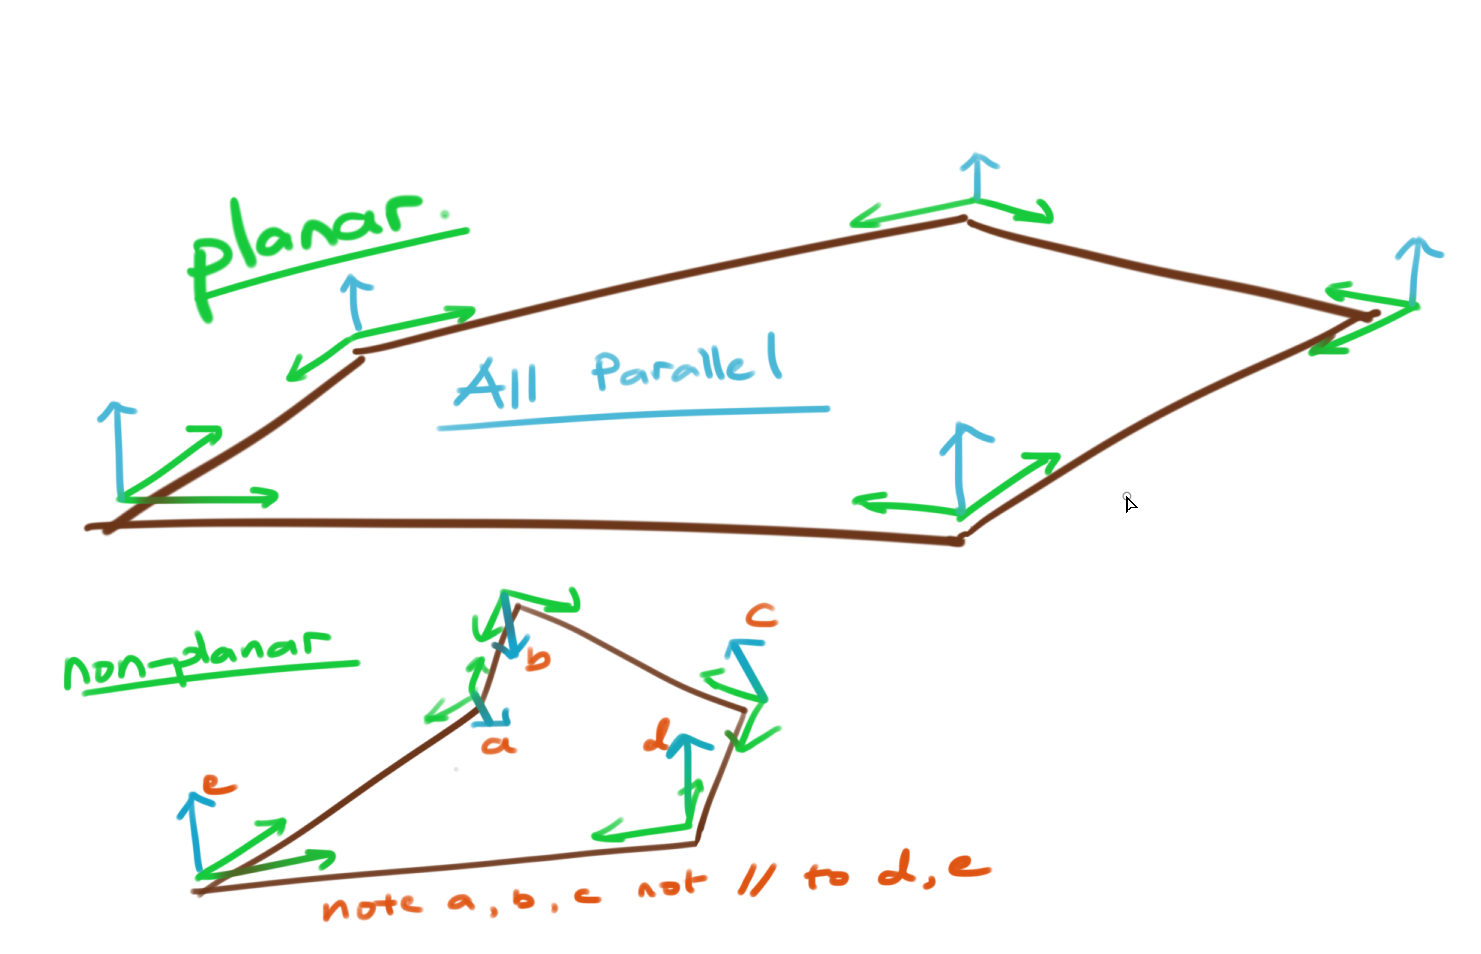 planar.
All Parallel
non-planar
b
c
a
d
e
note a, b, c not // to d, e